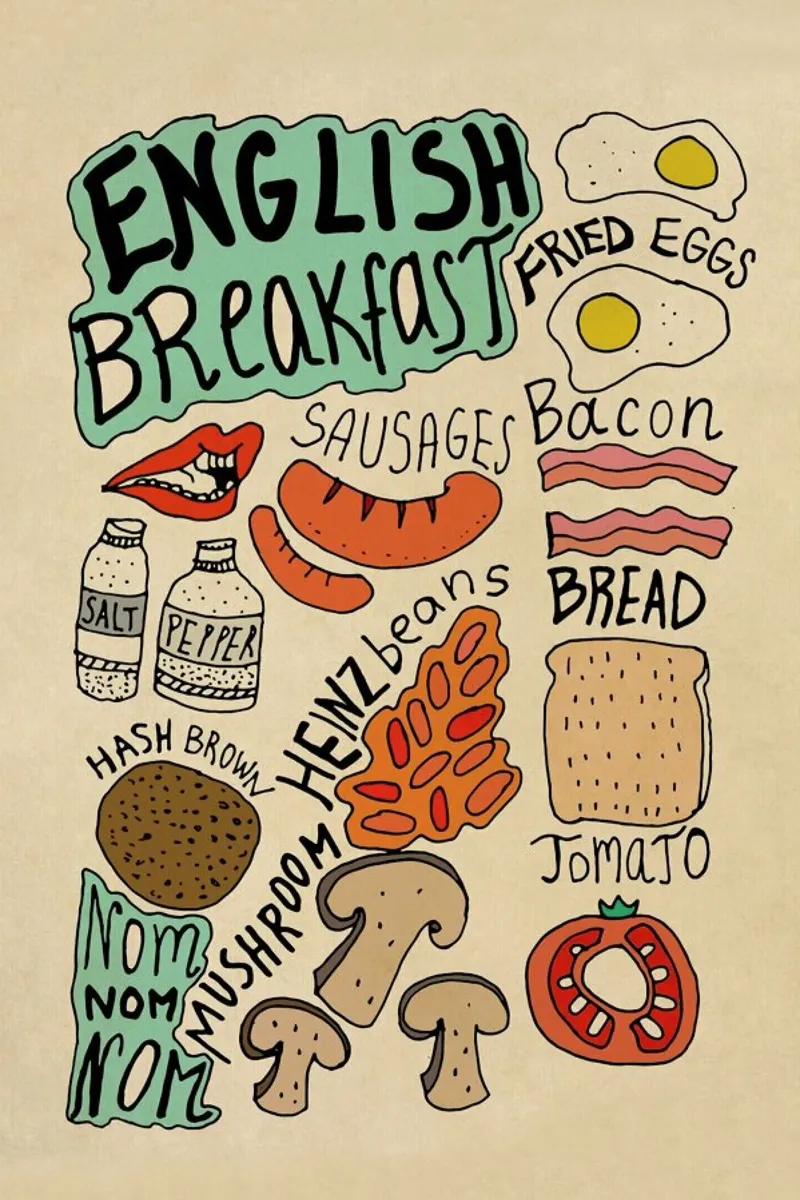 ENGLISH
BReakfasT
FRIED EGGS
SAUSAGES
Bacon
SALT
PEPPER
HEINZ beans
BREAD
HASH BROWN
MUSHROOM
TomaTo
Nom
NOM
NOM